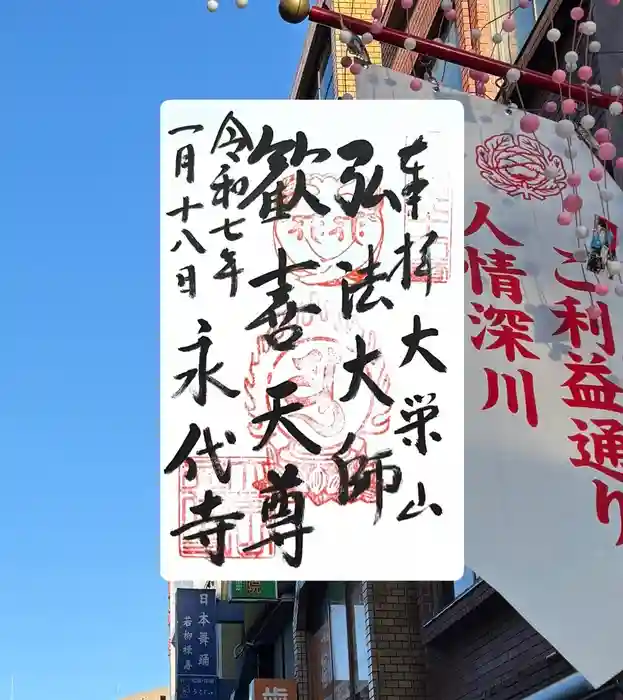 奉拝 大栄山
弘法大師
歓喜天尊
令和七年
一月十八日
永代寺
ご利益通り
人情深川
日本舞踊
若柳様寿
院
歯